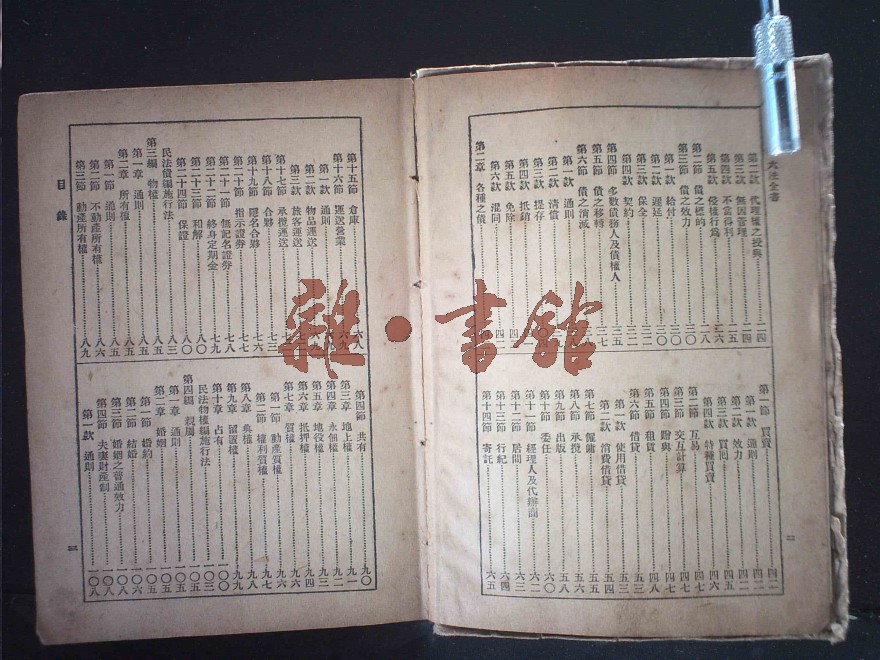 六法全書
第二款 代理權之授與 二四
第三款 無因管理 二四
第四款 不當得利 二五
第五款 侵權行爲 二六
第二節 債之標的 二八
第三節 債之效力 三〇
第一款 給付 三〇
第二款 遲延 三一
第三款 保全 三二
第四款 契約 三二
第四節 多數債務人及債權人 三五
第五節 債之移轉 三七
第六節 債之消滅
第一款 通則
第二款 清償
第三款 提存
第四款 抵銷
第五款 免除 四
第六款 混同 四二
第二章 各種之債
第一節 買賣 四二
第一款 通則 四二
第二款 效力 四二
第三款 買囘 四五
第四款 特種買賣 四六
第二節 互易 四七
第三節 交互計算 四七
第四節 贈與 四八
第五節 租賃 四八
第六節 借貸 五三
第一款 使用借貸 五三
第二款 消費借貸 五四
第七節 僱傭 五五
第八節 承攬 五六
第九節 出版 五八
第十節 委任 六〇
第十一節 經理人及代辦商 六二
第十二節 居間 六三
第十三節 行紀 六四
第十四節 寄託 六五
二
第十五節 倉庫 六八
第十六節 運送營業 六九
第一款 通則
第二款 物品運送
第三款 旅客運送
第十七節 承攬運送 七三
第十八節 合夥
第十九節 隱名合夥 七六
第二十節 指示證券 七七
第二十一節 無記名證券 七八
第二十二節 終身定期金 七九
第二十三節 和解 八〇
第二十四節 保證 八〇
民法債編施行法 八三
第三編 物權 八五
第一章 通則 八五
第二章 所有權 八五
第一節 通則 八五
第二節 不動產所有權 八六
第三節 動產所有權 八九
目錄
第四節 共有 九〇
第三章 地上權 九一
第四章 永佃權 九二
第五章 地役權 九三
第六章 抵押權 九四
第七章 質權 九六
第一節 動產質權 九六
第二節 權利質權 九七
第八章 典權 九八
第九章 留置權 九九
第十章 占有 一〇〇
民法物權編施行法 一〇三
第四編 親屬 一〇五
第一章 通則 一〇五
第二章 婚姻 一〇五
第一節 婚約 一〇五
第二節 結婚 一〇六
第三節 婚姻之普通效力 一〇八
第四節 夫妻財產制 一〇八
第一款 通則 一〇八
三
雜·書館